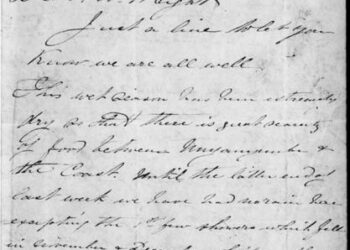 Just a line to let you
Know we are all well
This wet season has been extremely
dry so that there is great scarcity
of food between Unyanyembe &
the Coast. Until the latter end of
last week we have had no rain here
excepting the 1st few showers which fell
in November &